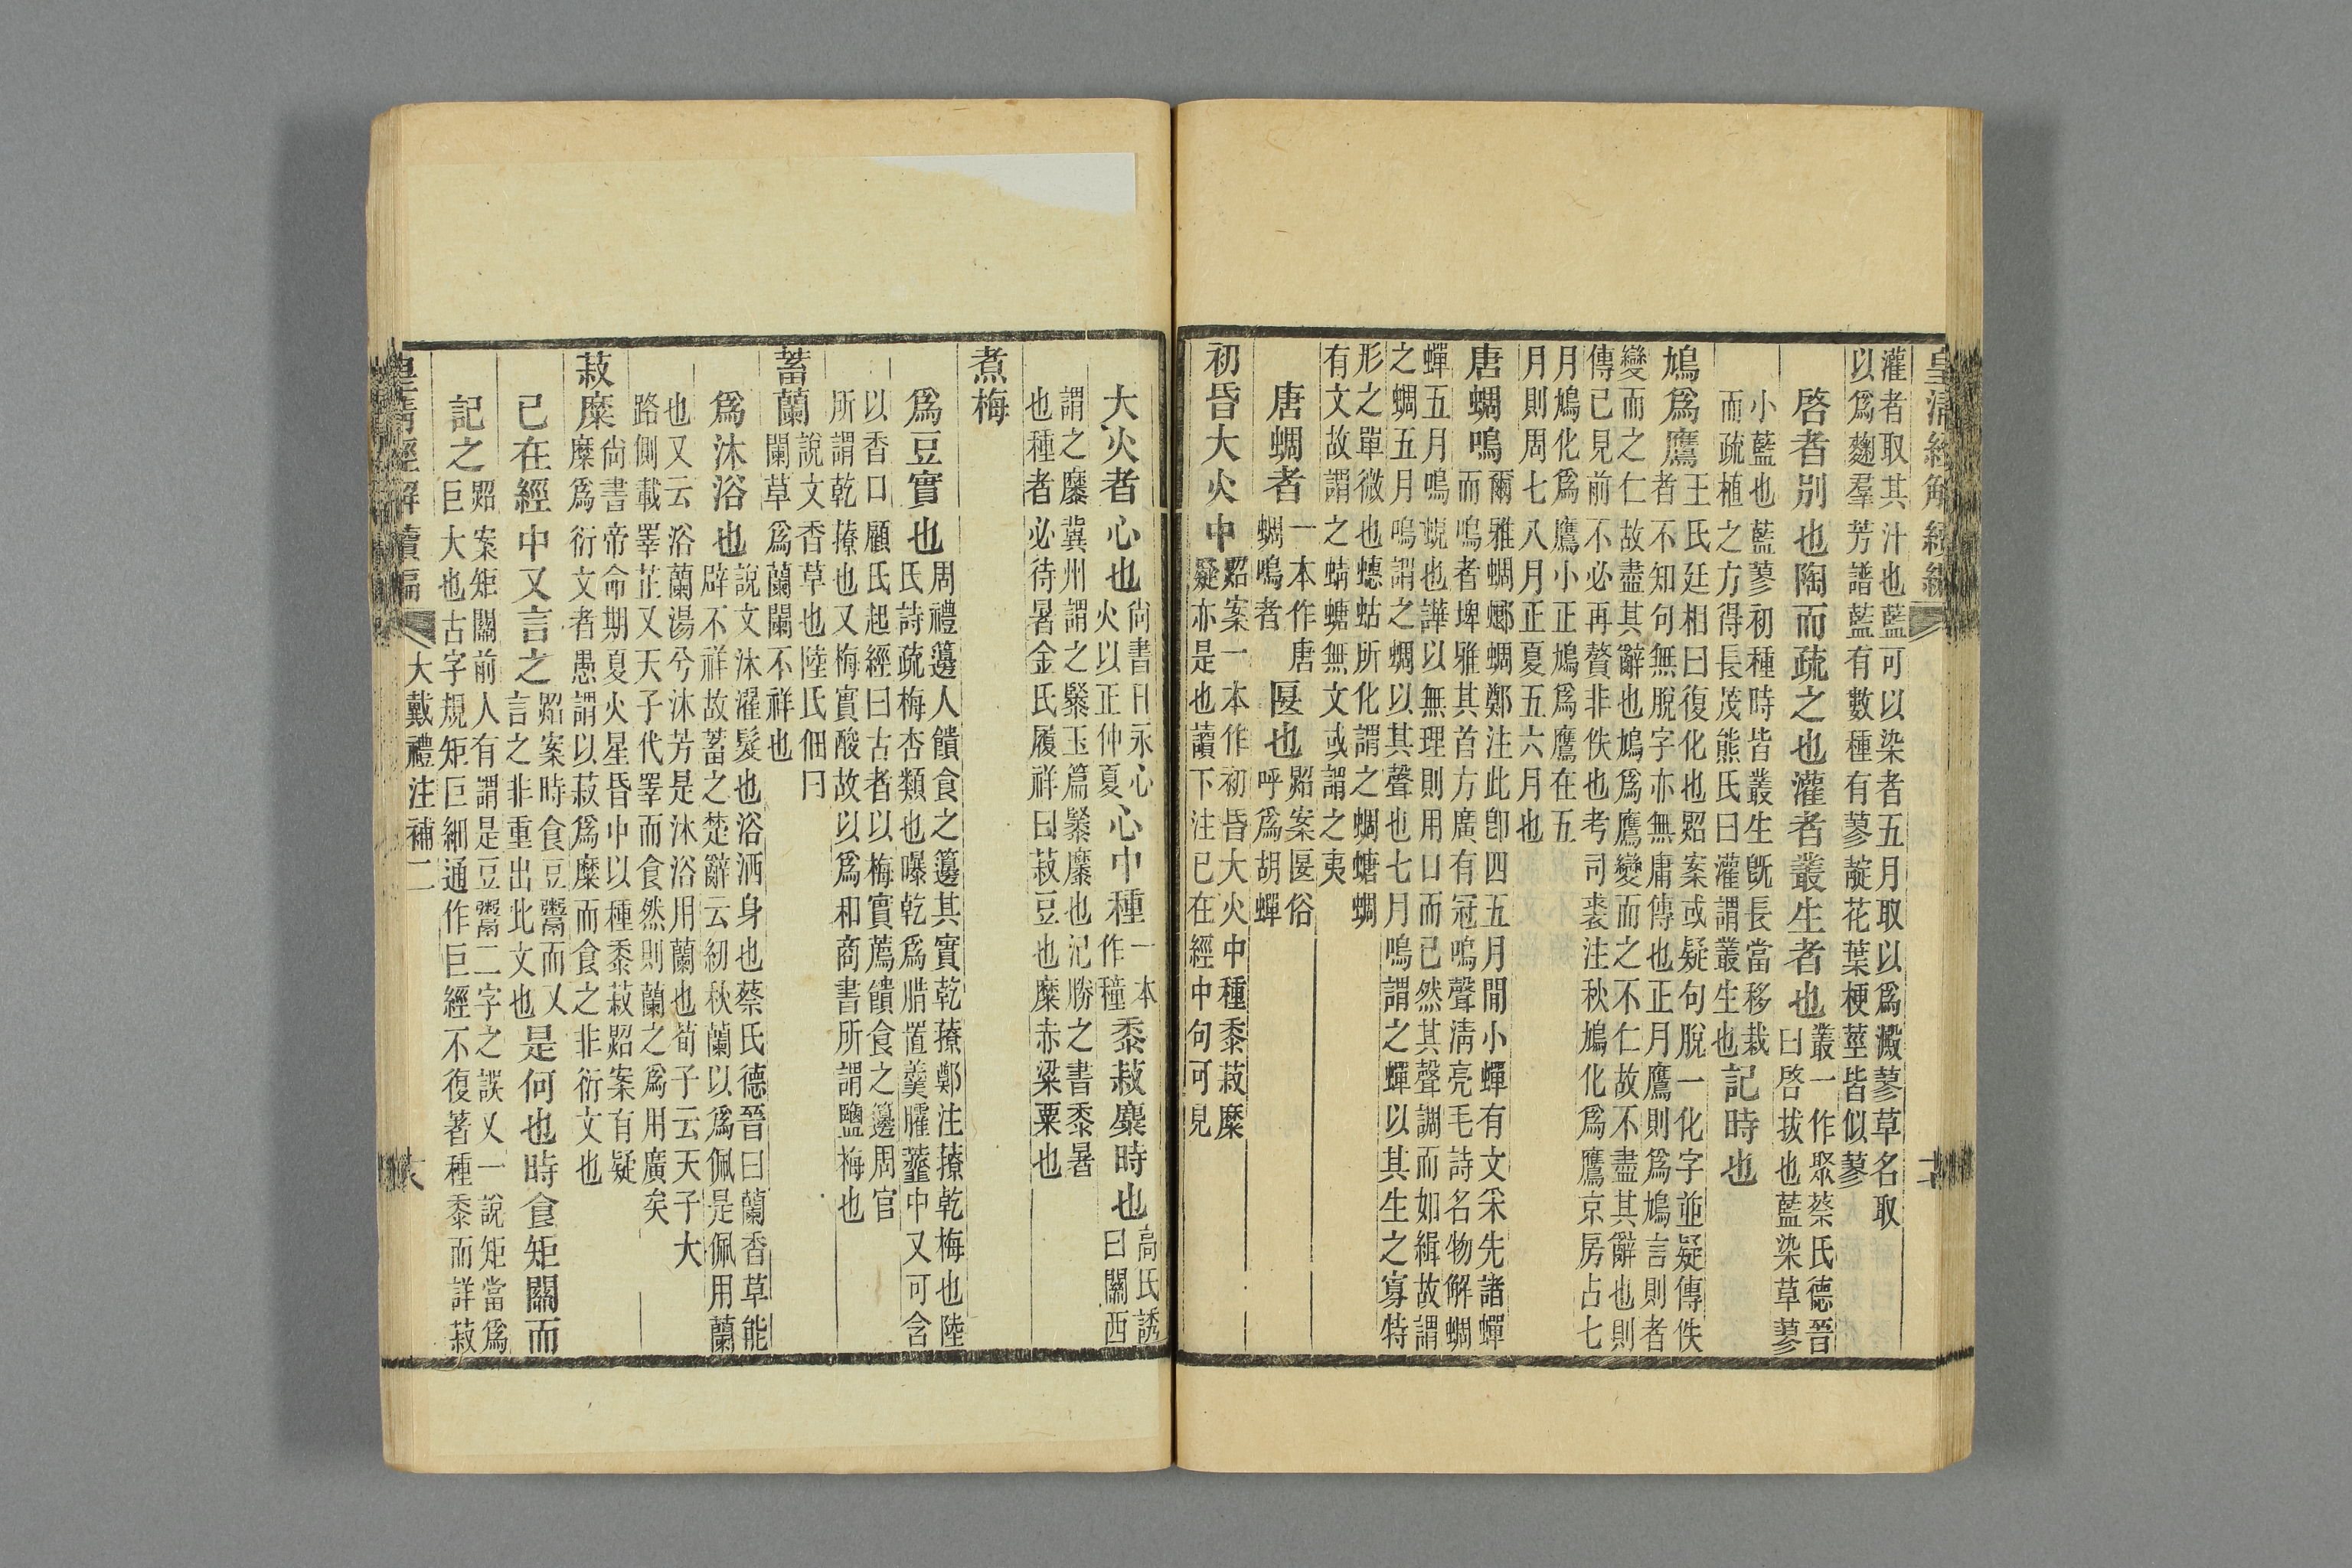 皇清經解續編
灌者取其汁也藍可以染者五月取以爲澱蓼草名取
以爲麹羣芳譜藍有數種有蓼靛花葉梗莖皆似蓼
啓者別也陶而疏之也灌者叢生者也叢一作聚蔡氏德晉
曰啓拔也藍染草蓼
小藍也藍蓼初種時皆叢生旣長當移栽
而疏植之方得長茂熊氏曰灌謂叢生也記時也
鳩爲鷹王氏廷相曰復化也炤案或疑句脫一化字並疑傳佚
者不知句無脫字亦無庸傳也正月鷹則爲鳩言則者
變而之仁故盡其辭也鳩爲鷹變而之不仁故不盡其辭也則
傳已見前不必再贅非佚也考司裘注秋鳩化爲鷹京房占七
月鳩化爲鷹小正鳩爲鷹在五
月則周七八月正夏五六月也
唐蜩鳴爾雅蜩蜋蜩鄭注此卽四五月閒小蟬有文采先諸蟬
而鳴者埤雅其首方廣有冠鳴聲淸亮毛詩名物解蜩
蟬五月鳴蜺也譁以無理則用口而已然其聲調而如緝故謂
之蜩五月鳴謂之蜩以其聲也七月鳴謂之蟬以其生之寡特
形之單微也蟪蛄所化謂之蜩螗蜩
有文故謂之蜻蟧無文或謂之夷
唐蜩者一本作唐
蜩鳴者匽也炤案匽俗
呼爲胡蟬
初昏大火中炤案一本作初昏大火中種黍菽糜
疑亦是也讀下注已在經中句可見
大火者心也尙書日永心
火以正仲夏心中種一本
作穜黍菽糜時也高氏誘
曰關西
謂之䵚冀州謂之䵖玉篇䵖䵚也氾勝之書黍暑
也種者必待暑金氏履祥曰菽豆也糜赤粱粟也
煮梅
爲豆實也周禮籩人饋食之籩其實乾䕩鄭注䕩乾梅也陸
氏詩疏梅杏類也曝乾爲腊置羹臛虀中又可含
以香口顧氏起經曰古者以梅實薦饋食之籩周官
所謂乾䕩也又梅實酸故以爲和商書所謂鹽梅也
蓄蘭說文香草也陸氏佃曰
闌草爲蘭闌不祥也
爲沐浴也說文沐濯髮也浴洒身也蔡氏德晉曰蘭香草能
辟不祥故蓄之楚辭云紉秋蘭以爲佩是佩用蘭
也又云浴蘭湯兮沐芳是沐浴用蘭也荀子云天子大
路側載睪芷又天子代睪而食然則蘭之爲用廣矣
菽糜尙書帝命期夏火星昏中以種黍菽炤案有疑
糜爲衍文者愚謂以菽爲糜而食之非衍文也
已在經中又言之炤案時食豆鬻而又
言之非重出此文也是何也時食矩關而
記之炤案矩關前人有謂是豆鬻二字之誤又一說矩當爲
巨大也古字規矩巨細通作巨經不復著種黍而詳菽
皇淸經解續編
大戴禮注補二